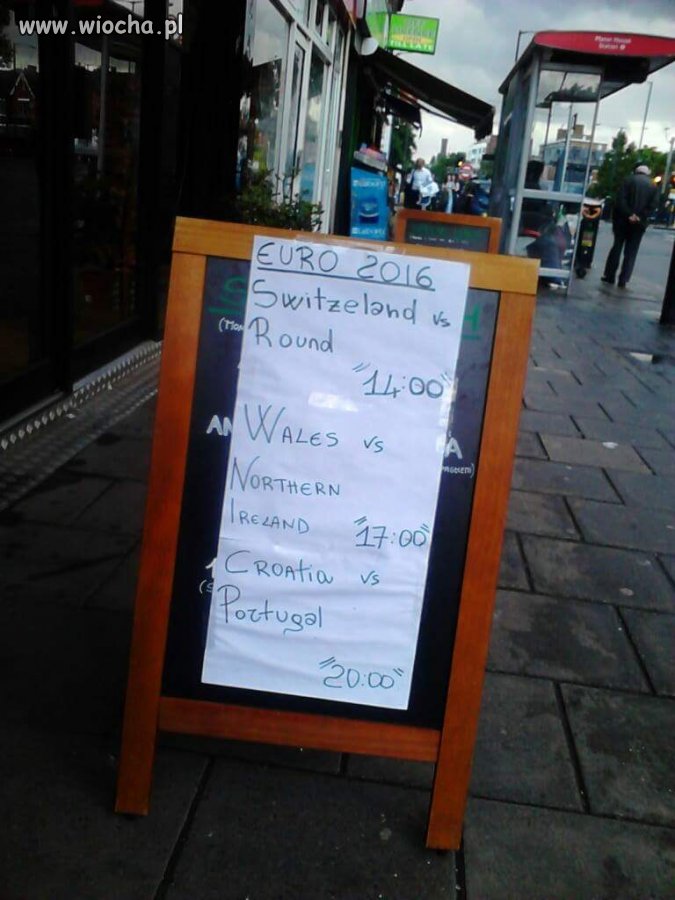 www.wiocha.pl
TILL LATE
Manor House
Station
EURO 2016
Switzeland vs
Round
"14:00"
WALES vs
NORTHERN
IRELAND "17:00"
CROATIA vs
Portugal
"20:00"